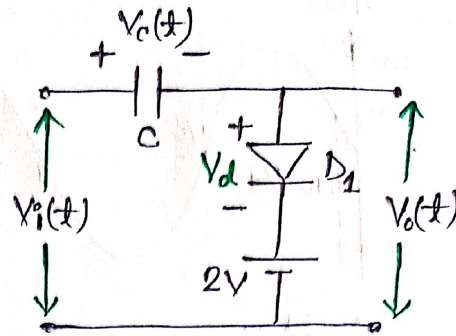 Vc(t)
+ −
C
+
Vd D1
−
Vi(t) Vo(t)
2V